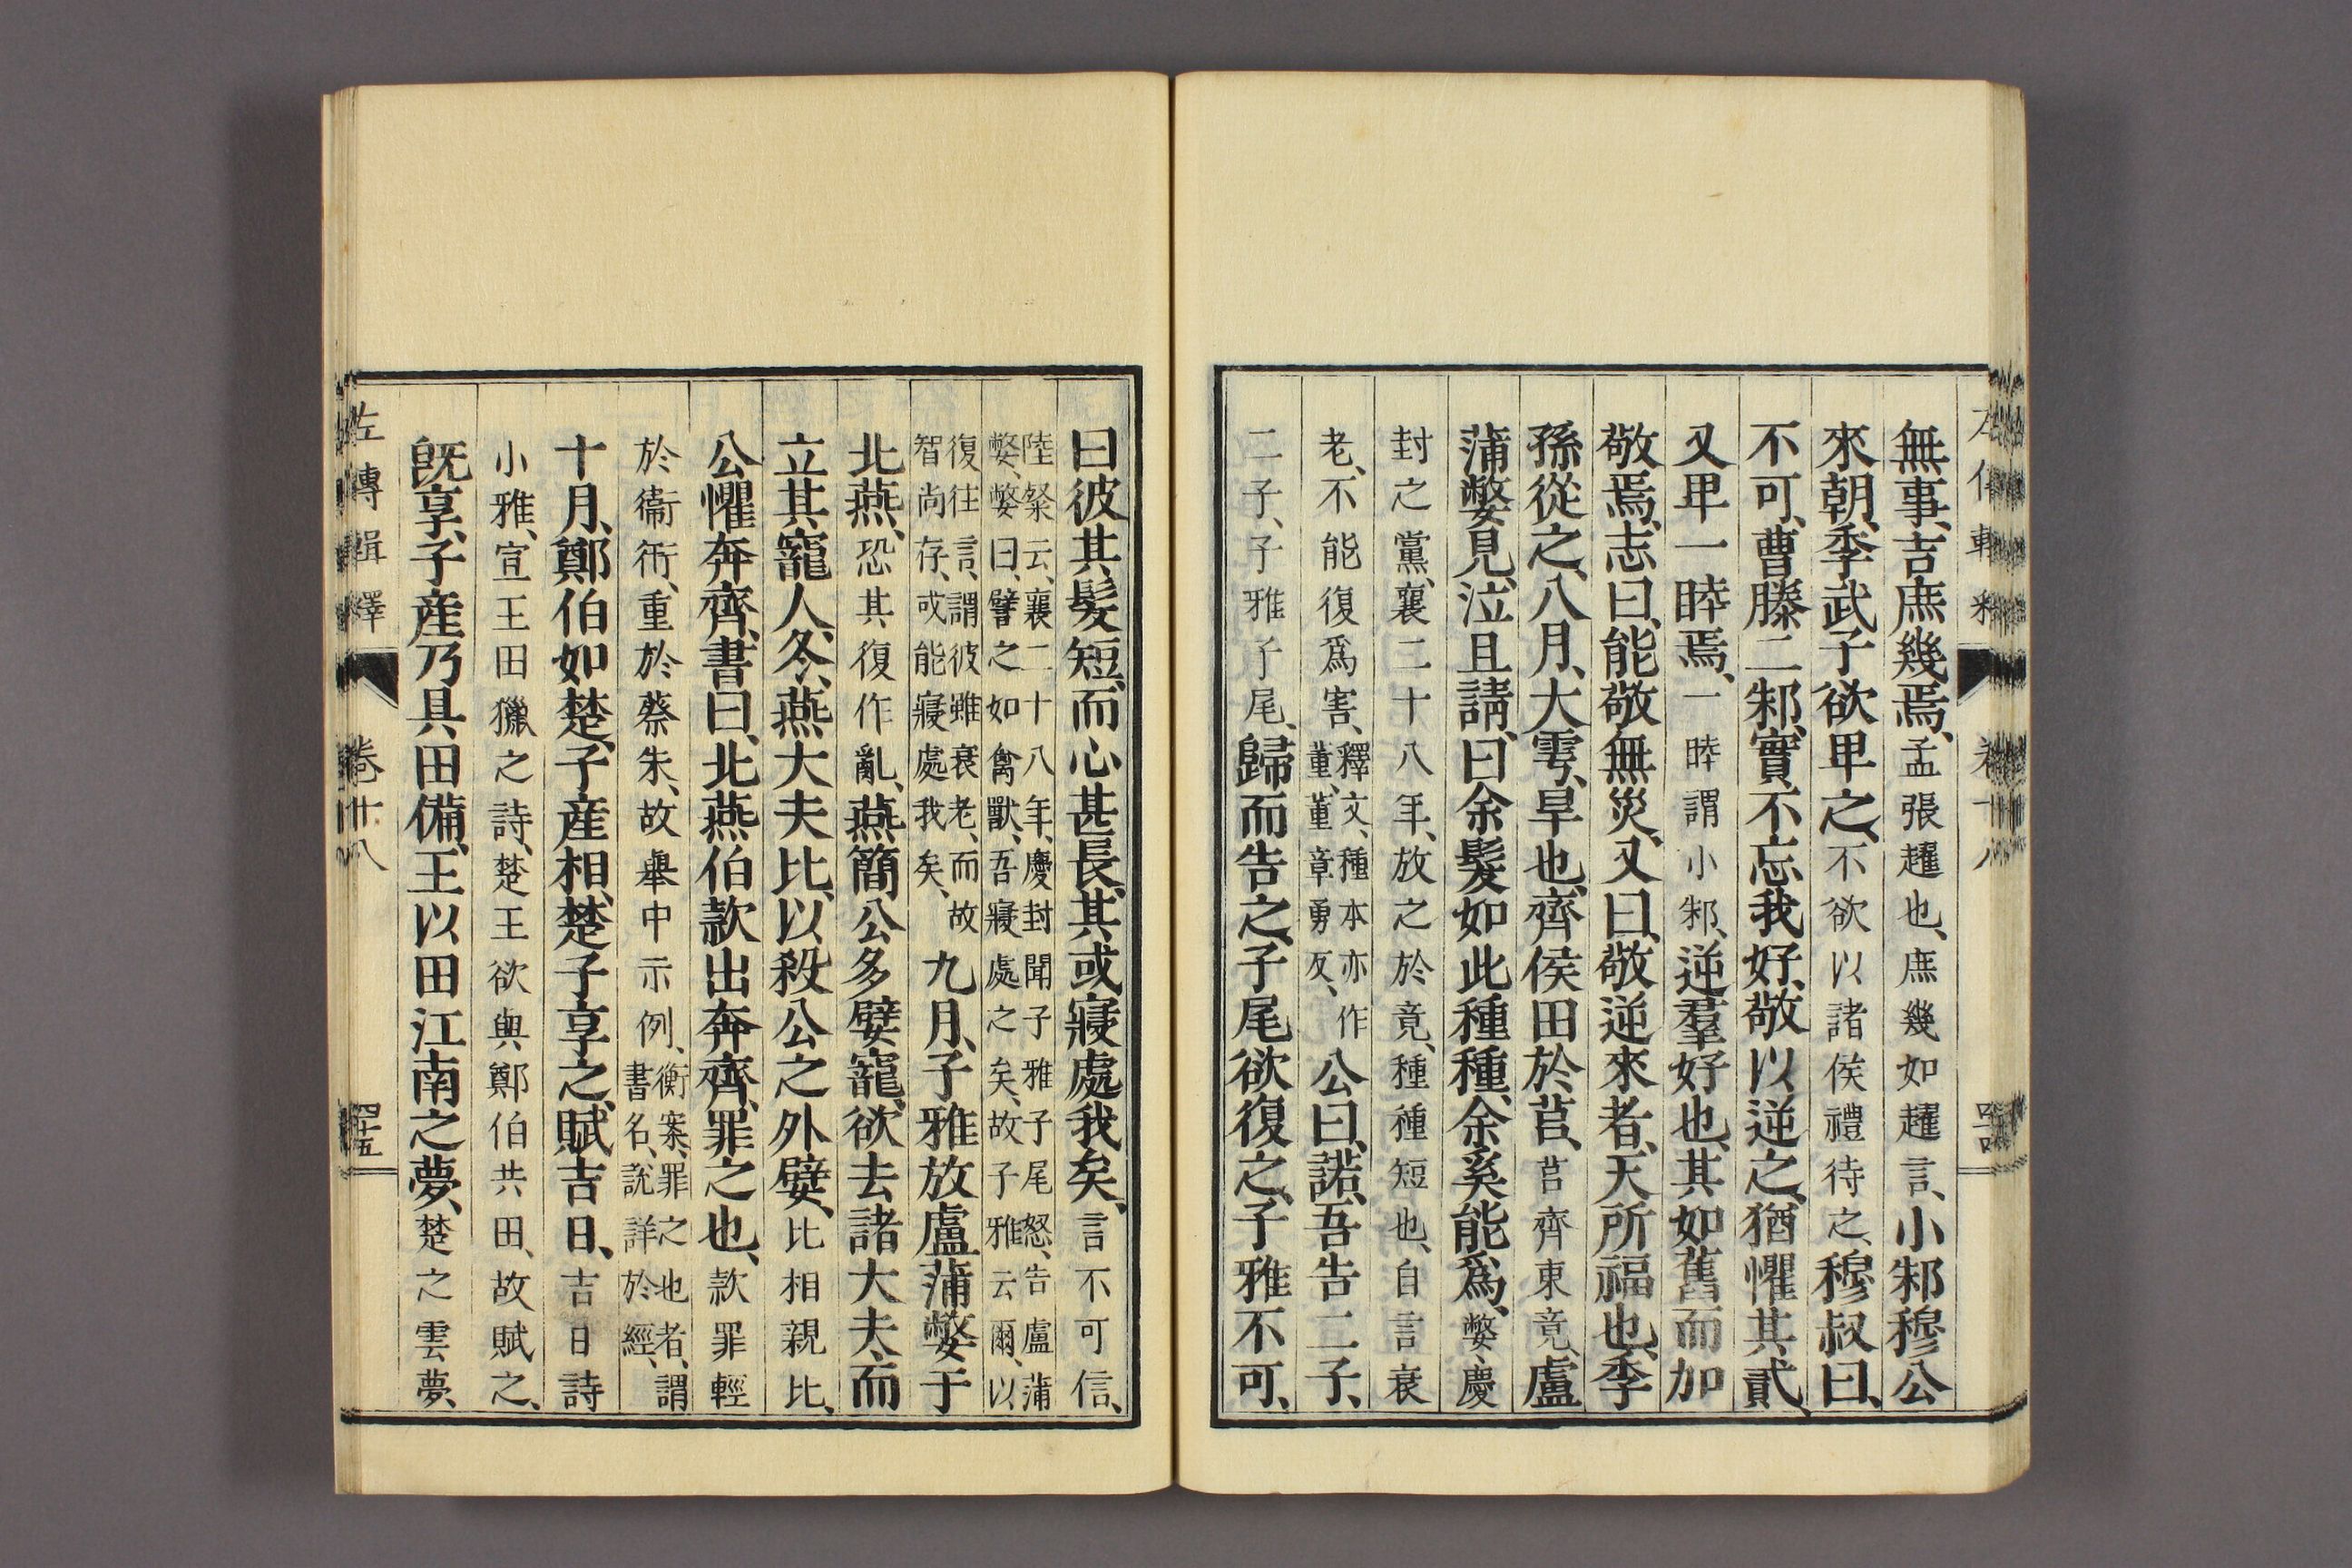 無事、吉庶幾焉、孟張趯也、庶幾如趯言、小邾穆公
來朝、季武子欲卑之、不欲以諸侯禮待之、穆叔曰、
不可、曹滕二邾、實不忘我好、敬以逆之、猶懼其貳、
又卑一睦焉、一睦謂小邾、逆羣好也、其如舊而加
敬焉、志曰、能敬無災、又曰、敬逆來者、天所福也、季
孫從之、八月、大雩、旱也、齊侯田於莒、莒齊東竟、盧
蒲嫳見、泣且請、曰余髮如此種種、余奚能爲、嫳、慶
封之黨、襄二十八年、放之於竟、種種短也、自言衰
老、不能復爲害、釋文、種本亦作
董、董章勇反、公曰、諾、吾告二子、
二子、子雅子尾、歸而告之、子尾欲復之、子雅不可、
曰彼其髮短、而心甚長、其或寢處我矣、言不可信、
陸粲云、襄二十八年、慶封聞子雅子尾怒、告盧蒲
嫳、嫳曰、譬之如禽獸、吾寢處之矣、故子雅云爾、以
復往言、謂彼雖衰老、而故
智尚存、或能寢處我矣、九月、子雅放盧蒲嫳于
北燕、恐其復作亂、燕簡公多嬖寵、欲去諸大夫、而
立其寵人、冬、燕大夫比、以殺公之外嬖、比相親比、
公懼奔齊、書曰、北燕伯款出奔齊、罪之也、款罪輕
於衞衎、重於蔡朱、故舉中示例、衡案、罪之也者、謂
書名、說詳於經、
十月、鄭伯如楚、子產相、楚子享之、賦吉日、吉日詩
小雅、宣王田獵之詩、楚王欲與鄭伯共田、故賦之、
既享、子產乃具田備、王以田江南之夢、楚之雲夢、
左傳輯釋
卷十八
四十五